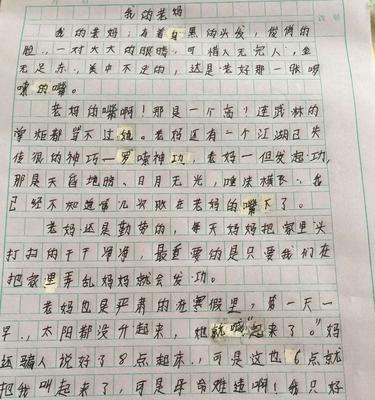 我的老妈
我的老妈,有着乌黑的头发,俊俏的
脸,一对大大的眼睛,可惜人无完人,金
无足赤,美中不足的,还是老妈那一张啰
嗦的嘴。
老妈的嘴啊!那是一个高!连武林的
掌柜都骂不过她。老妈还有一个江湖已失
传很的神巧—罗嗦神功,老妈一但发起功,
那是天昏地暗、日月无光,
已经不知道第几次败在老妈的嘴下了。
老妈还是勤劳的,每天妈妈把家里头
打扫的干干净净,最重要的是只要我们在
把家里弄乱妈妈就会发功。
老妈也是严肃的在寒假里,第一天一
早,太阳都没升起来,她就喊“起来了。”妈
还骗人说好了8点起来,可是这也6点就
把我叫起来了,可是军命难违啊!我只好